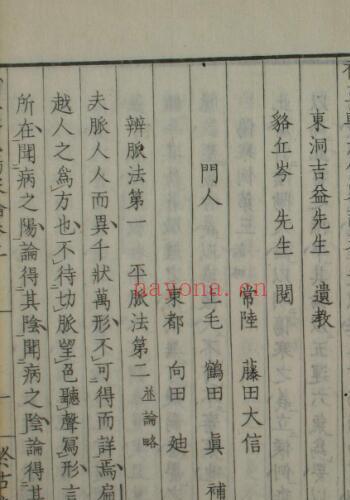 東洞吉益先生 遺教
貉丘岑先生 閱
常陸 藤田大信
門人 上毛 鶴田眞 補
東都 向田廸
辨脈法第一 平脈法第二 並論略
夫脈人人而異千狀萬形不可得而詳焉扁
越人之爲方也不待切脈望色聽聲寫形言
所在聞病之陽論得其陰聞病之陰論得其
nayona.cn